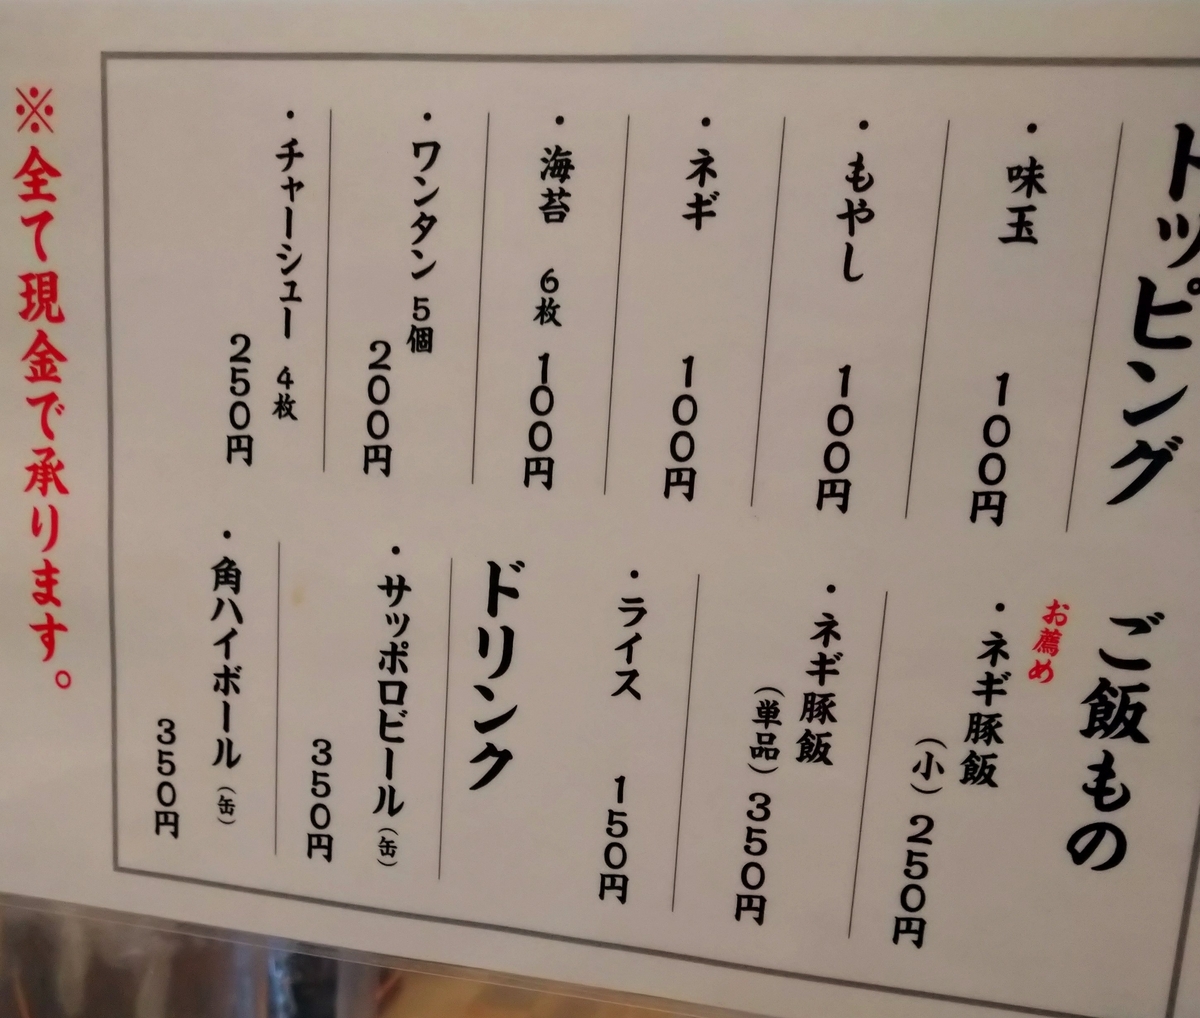 トッピング
・味玉 100円
・もやし 100円
・ネギ 100円
・海苔 6枚 100円
・ワンタン 5個
200円
・チャーシュー 4枚
250円
ご飯もの
お薦め
・ネギ豚飯
(小) 250円
・ネギ豚飯
(単品) 350円
・ライス 150円
ドリンク
・サッポロビール(缶)
350円
・角ハイボール(缶)
350円
※全て現金で承ります。